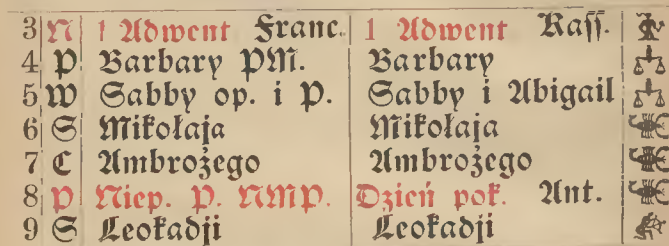 3 N 1 Adwent Franc. 1 Adwent Kass.
4 P Barbary PM. Barbary
5 W Sabby op. i P. Sabby i Abigail
6 S Mikołaja Mikołaja
7 C Ambrożego Ambrożego
8 P Niep. P. NMP. Dzień pok. Ant.
9 S Leokadji Leokadji